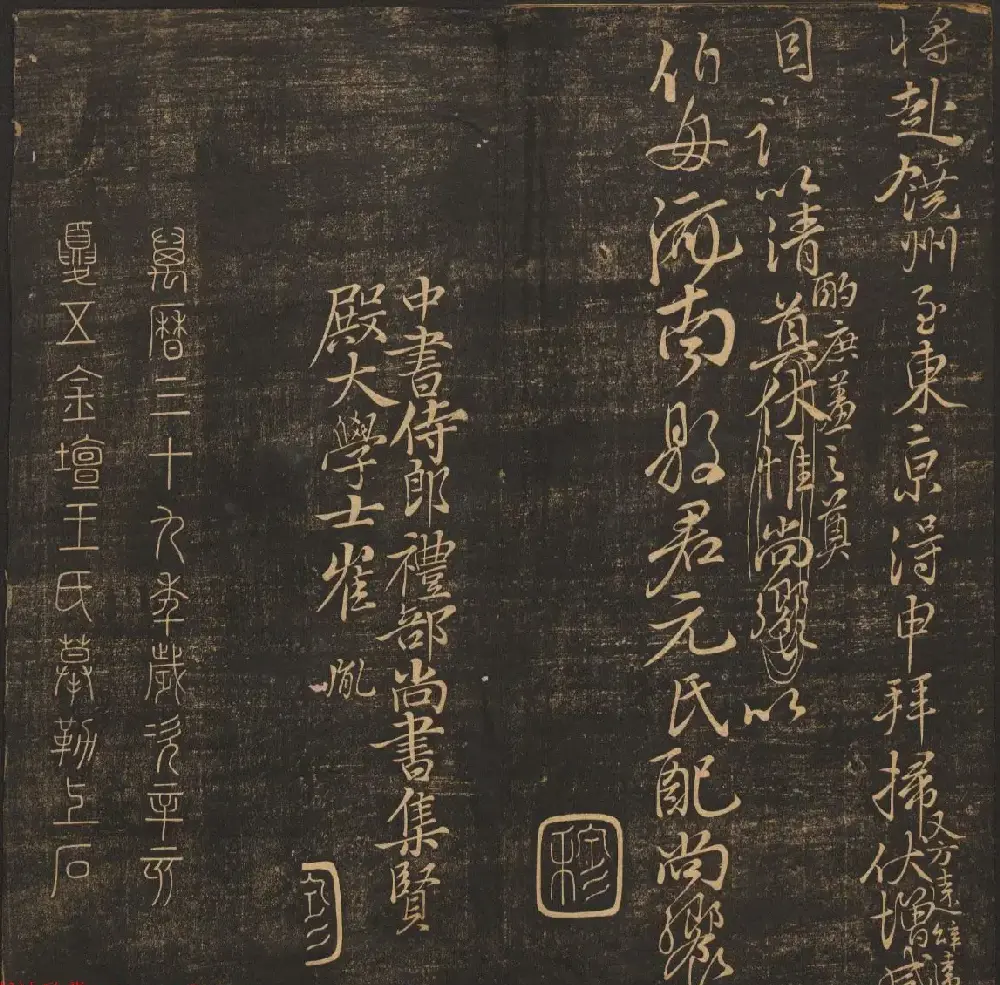 將赴饒州至東京得申拜掃伏增感
又方遠辭違
酌庶羞之奠
目謹以清奠伏惟尚饗以
伯母河南縣君元氏配尚饗
中書侍郎禮部尚書集賢
殿大學士崔胤
萬曆三十九年歲次辛亥
夏五金壇王氏摹勒上石